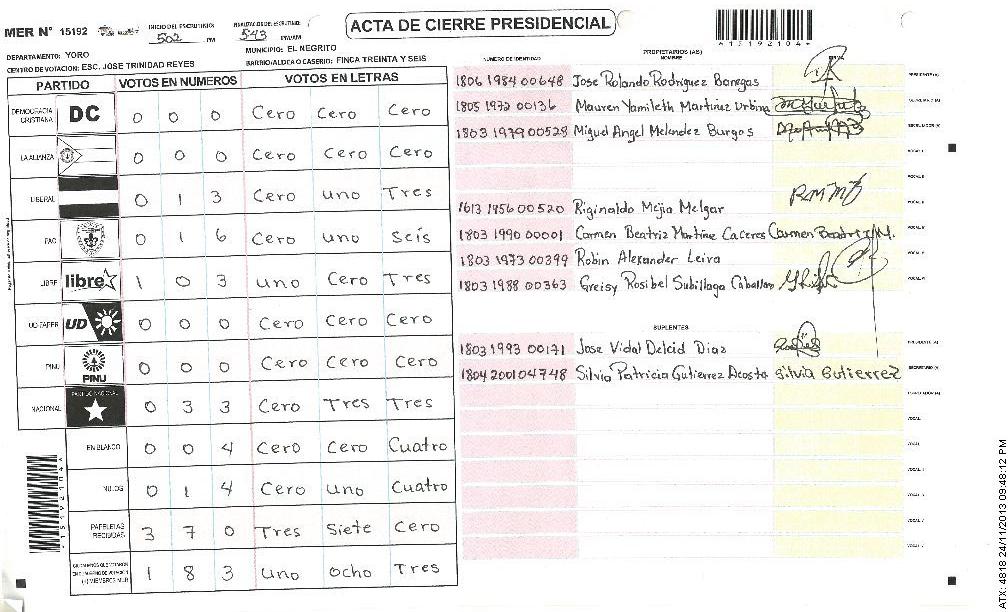 ACTA DE CIERRE PRESIDENCIAL
MER N° 15192
INICIO DEL ESCRUTINIO 502 PM
FINALIZACION DEL ESCRUTINIO 543 PM/AM
*151921041*
DEPARTAMENTO: YORO
MUNICIPIO: EL NEGRITO
CENTRO DE VOTACION: ESC. JOSE TRINIDAD REYES
BARRIO/ALDEA O CASERIO: FINCA TREINTA Y SEIS
PARTIDO VOTOS EN NUMEROS VOTOS EN LETRAS
DEMOCRACIA CRISTIANA DC 0 0 0 Cero Cero Cero
LA ALIANZA 0 0 0 Cero Cero Cero
LIBERAL 0 1 3 Cero uno Tres
PAC 0 1 6 Cero uno Seis
LIBRE libre 1 0 3 uno Cero Tres
UD-FAPER UD 0 0 0 Cero Cero Cero
PINU PINU 0 0 0 Cero Cero Cero
NACIONAL PARTIDO NACIONAL 0 3 3 Cero Tres Tres
EN BLANCO 0 0 4 Cero Cero Cuatro
NULOS 0 1 4 Cero uno Cuatro
PAPELETAS RECIBIDAS 3 7 0 Tres Siete Cero
1 8 3 uno ocho Tres
NUMERO DE IDENTIDAD
PROPIETARIOS (AS)
NOMBRE
1806 1984 00648 Jose Rolando Rodriguez Banegas PRESIDENTE (A)
1805 1972 00136 Mauren Yamileth Martinez Urbina SECRETARIO (A)
1803 1979 00528 Miguel Angel Melendez Burgos ESCRUTADOR (A)
VOCAL I
VOCAL II
1613 1956 00520 Riginaldo Mejia Melgar VOCAL III
1803 1990 00001 Carmen Beatriz Martine Caceres Carmen Beatriz M. VOCAL IV
1803 1973 00399 Robin Alexander Leiva VOCAL V
1803 1988 00363 Greisy Rosibel Subillaga Caballero VOCAL VI
SUPLENTES
1803 1993 00171 Jose Vidal Delcid Diaz PRESIDENTE (A)
1804 2001 04748 Silvia Patricia Gutierrez Acosta Silvia Gutierrez SECRETARIO (A)
ESCRUTADOR (A)
VOCAL I
VOCAL II
VOCAL III
VOCAL IV
VOCAL V
VOCAL VI
ATX: 4818 24/11/2013 09:48:12 PM